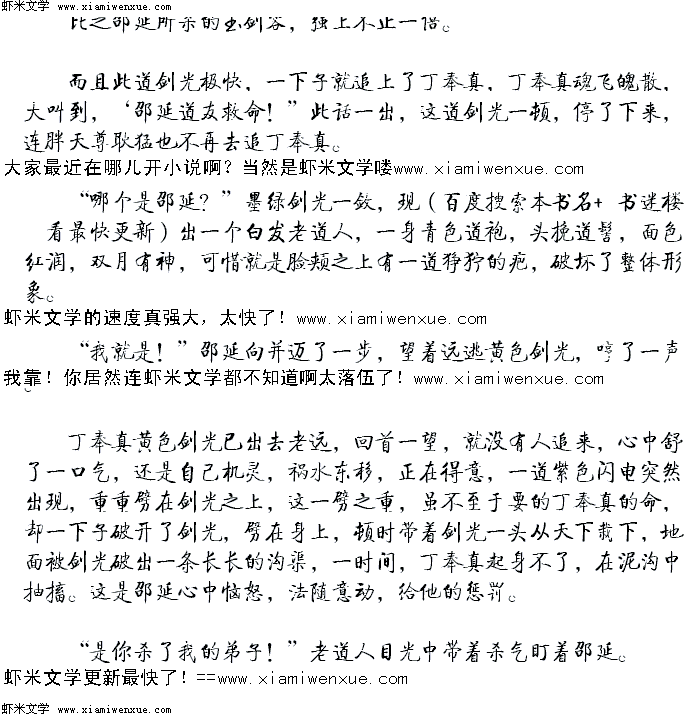 虾米文学 www.xiamiwenxue.com
比之邵延所杀的王剑容，强上不止一倍。
而且此道剑光极快，一下子就追上了丁奉真，丁奉真魂飞魄散，
大叫到，‘邵延道友救命！”此话一出，这道剑光一顿，停了下来，
连胖天尊耿猛也不再去追丁奉真。
大家最近在哪儿开小说啊？当然是虾米文学喽www.xiamiwenxue.com
“哪个是邵延？”墨绿剑光一敛，现（百度搜索本书名+ 书迷楼
看最快更新）出一个白发老道人，一身青色道袍，头挽道髻，面色
红润，双月有神，可惜就是脸颊之上有一道狰狞的疤，破坏了整体形
象。
虾米文学的速度真强大，太快了！www.xiamiwenxue.com
“我就是！”邵延向并迈了一步，望着远逃黄色剑光，哼了一声
我靠！你居然连虾米文学都不知道啊太落伍了！www.xiamiwenxue.com
。
丁奉真黄色剑光已出去老远，回首一望，就没有人追来，心中舒
了一口气，还是自己机灵，祸水东移，正在得意，一道紫色闪电突然
出现，重重劈在剑光之上，这一劈之重，虽不至于要的丁奉真的命，
却一下子破开了剑光，劈在身上，顿时带着剑光一头从天下栽下，地
面被剑光破出一条长长的沟渠，一时间，丁奉真起身不了，在泥沟中
抽搐。这是邵延心中恼怒，法随意动，给他的惩罚。
“是你杀了我的弟子！”老道人目光中带着杀气盯着邵延。
虾米文学更新最快了！==www.xiamiwenxue.com
虾米文学 www.xiamiwenxue.com